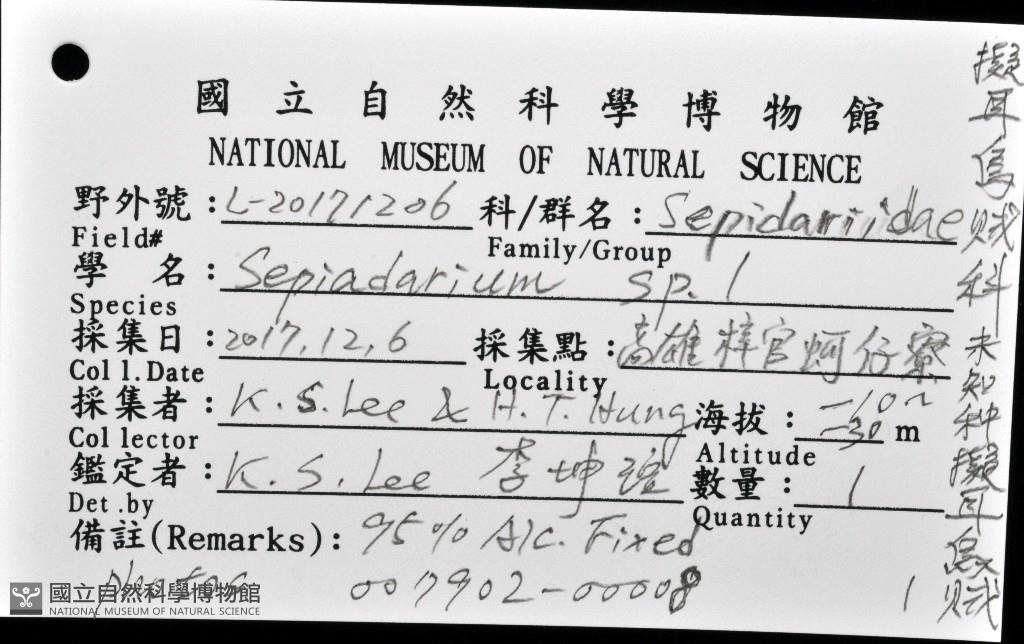 國立自然科學博物館
NATIONAL MUSEUM OF NATURAL SCIENCE
野外號：L-20171206 科/群名：Sepidariidae
Field# Family/Group
學名：Sepiadarium sp. 1
Species
採集日：2017.12.6 採集點：高雄梓官蚵仔寮
Coll.Date Locality
採集者：K.S.Lee & H.T.Hung 海拔：-10~-30 m
Collector Altitude
鑑定者：K.S.Lee 李坤瑄 數量：1
Det.by Quantity
備註(Remarks)：95% Alc. Fixed
Photos 007902-00008 1
擬耳烏賊科未知种擬耳烏賊
國立自然科學博物館
NATIONAL MUSEUM OF NATURAL SCIENCE